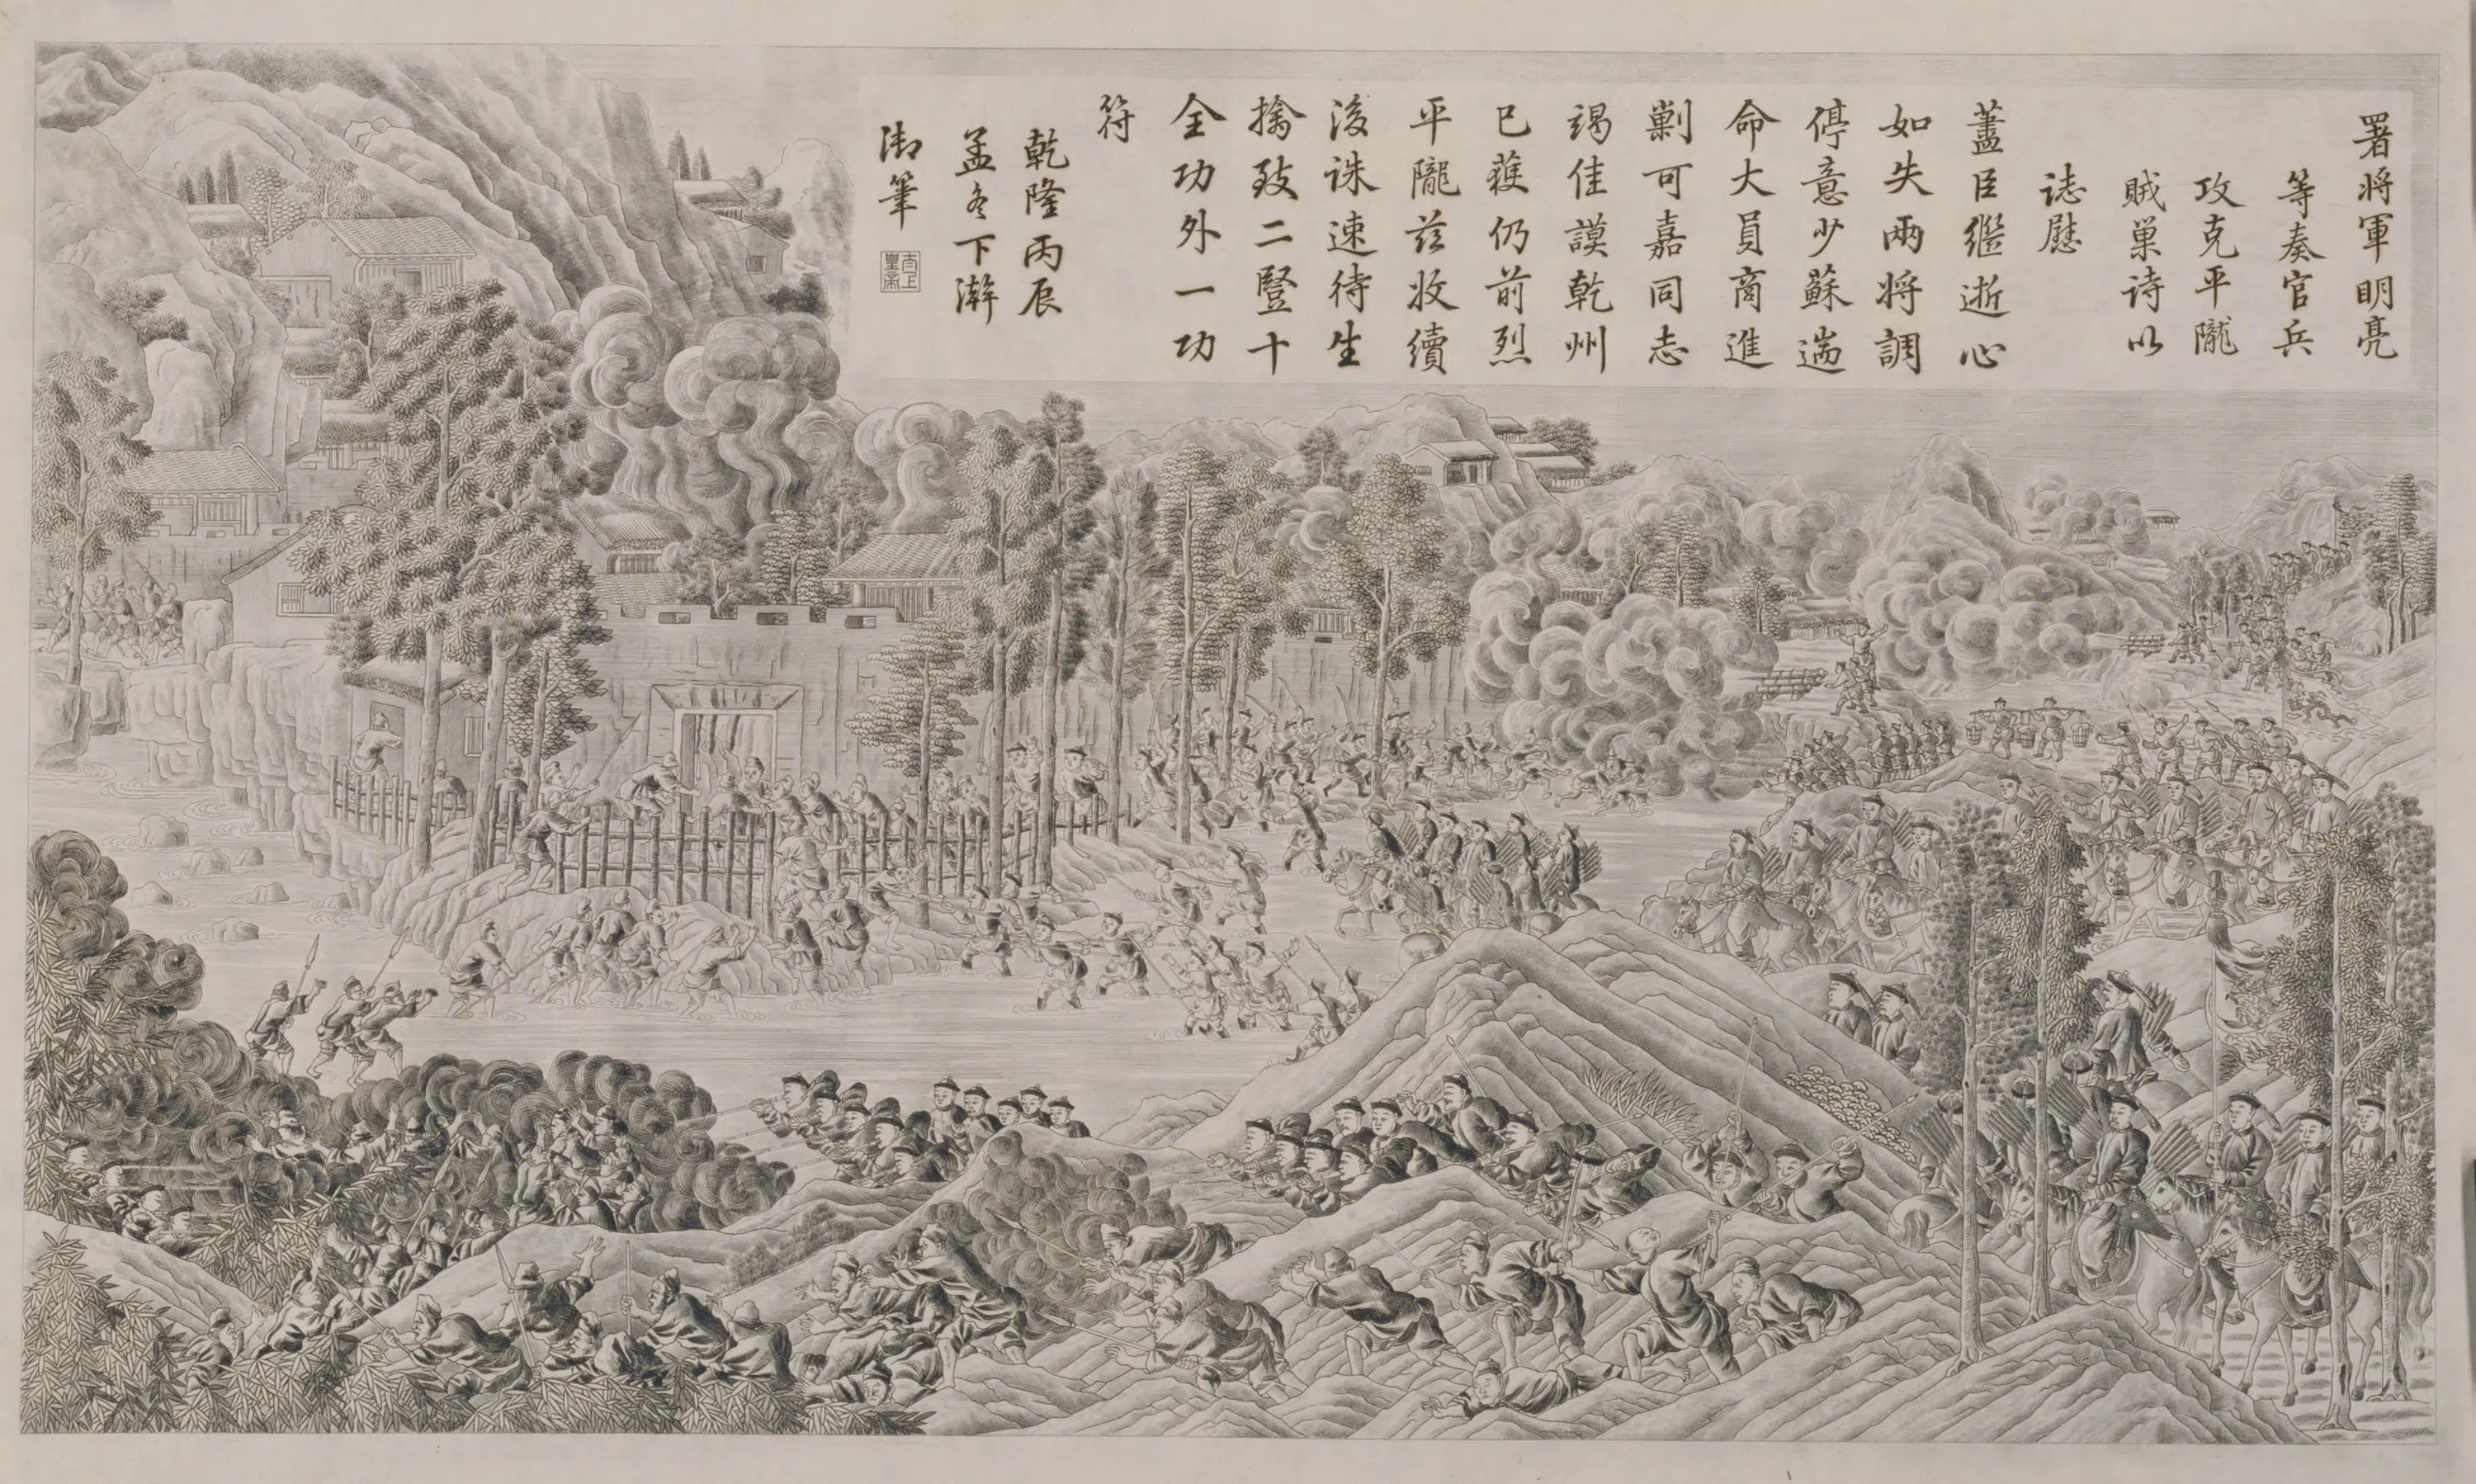 署將軍明亮
等奏官兵
攻克平隴
賊巢詩以
誌慰
藎臣繼逝心
如失兩將調
停意少蘇遄
命大員商進
剿可嘉同志
竭佳謨乾州
已蕕仍前烈
平隴茲收續
後誅速待生
擒致二豎十
全功外一功
符
乾隆丙辰
孟冬下澣
御筆
太上
皇帝